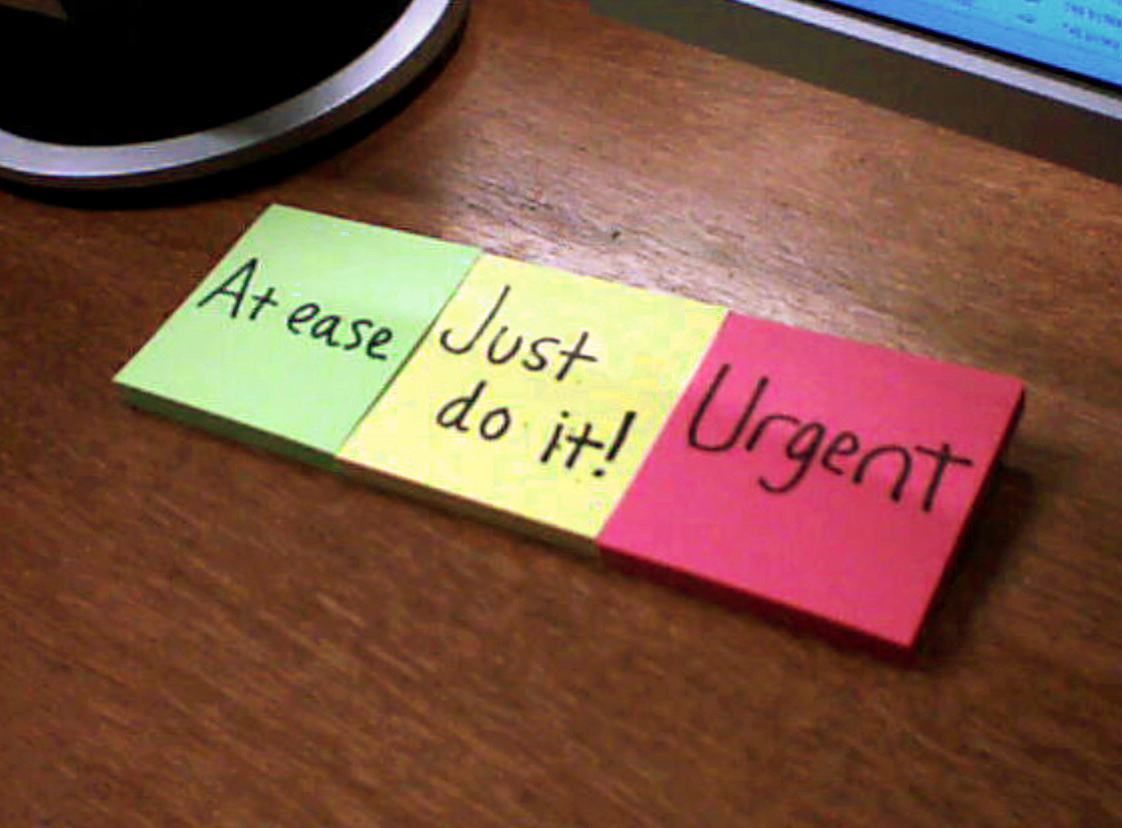 At ease
Just
do it!
Urgent